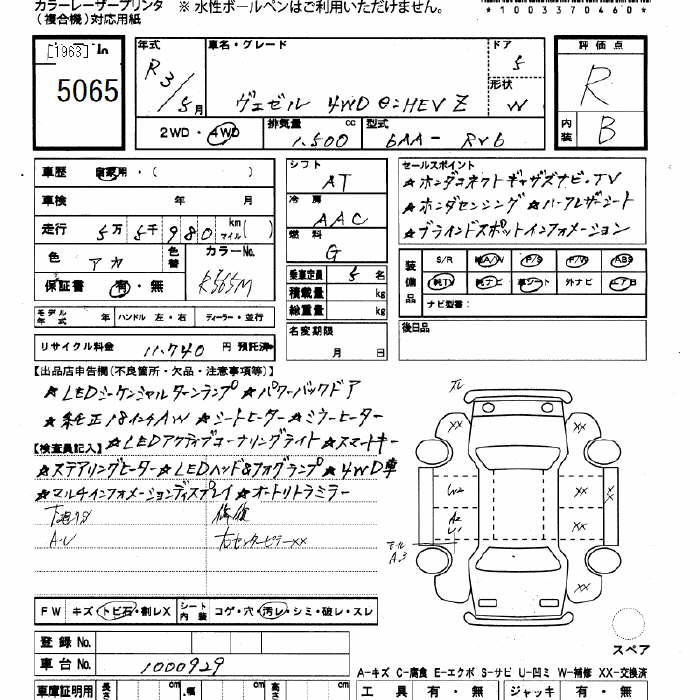 カラーレーザープリンタ ※水性ボールペンはご利用いただけません。
(複合機)対応用紙
*1003370460*
[1963] In
5065
年式 R3/5月
車名・グレード
ヴェゼル 4WD e:HEV Z
ドア 5
形状 W
評価点 R
内装 B
2WD・4WD
排気量 1,500 cc
型式 6AA- RV6
車歴 自家用・( )
車検 年 月
走行 5万 5千 980 km マイル( )
色 アカ
色替
カラーNo. R565M
保証書 有・無
モデル年式 年 ハンドル 左・右 ディーラー・並行
リサイクル料金 11,740 円 預託済
シフト AT
冷房 AAC
燃料 G
乗車定員 5 名
積載量 kg
総重量 kg
名変期限
月 日
セールスポイント
★ホンダコネクトギャザズナビ・TV
★ホンダセンシング ★ハーフレザーシート
★ブラインドスポットインフォメーション
装備品
S/R 純A/W P/S P/W ABS
純TV 純ナビ 革シート 外ナビ エアB
ナビ型番:
後日品
【出品店申告欄(不良箇所・欠品・注意事項等)】
★LEDシーケンシャルターンランプ ★パワーバックドア
★純正18インチAW ★シートヒーター ★ミラーヒーター
【検査員記入】 ★LEDアクティブコーナリングライト ★スマートキー
★ステアリングヒーター ★LEDヘッド&フォグランプ ★4WD車
★マルチインフォメーションディスプレイ ★オートリトラミラー
下廻りサ 修復
A-U 右センターピラーXX
TL
XX XX
W2 XX XX
A2
U1 XX
A3
XX
FW キズ・トビ石・割レX シート内装 コゲ・穴・汚レ・シミ・破レ・スレ
スペア
登録No.
車台No. 1000929
A-キズ C-腐食 E-エクボ S-サビ U-凹ミ W-補修 XX-交換済
車庫証明用 長さ cm 幅 cm 高さ cm
工具 有・無 ジャッキ 有・無